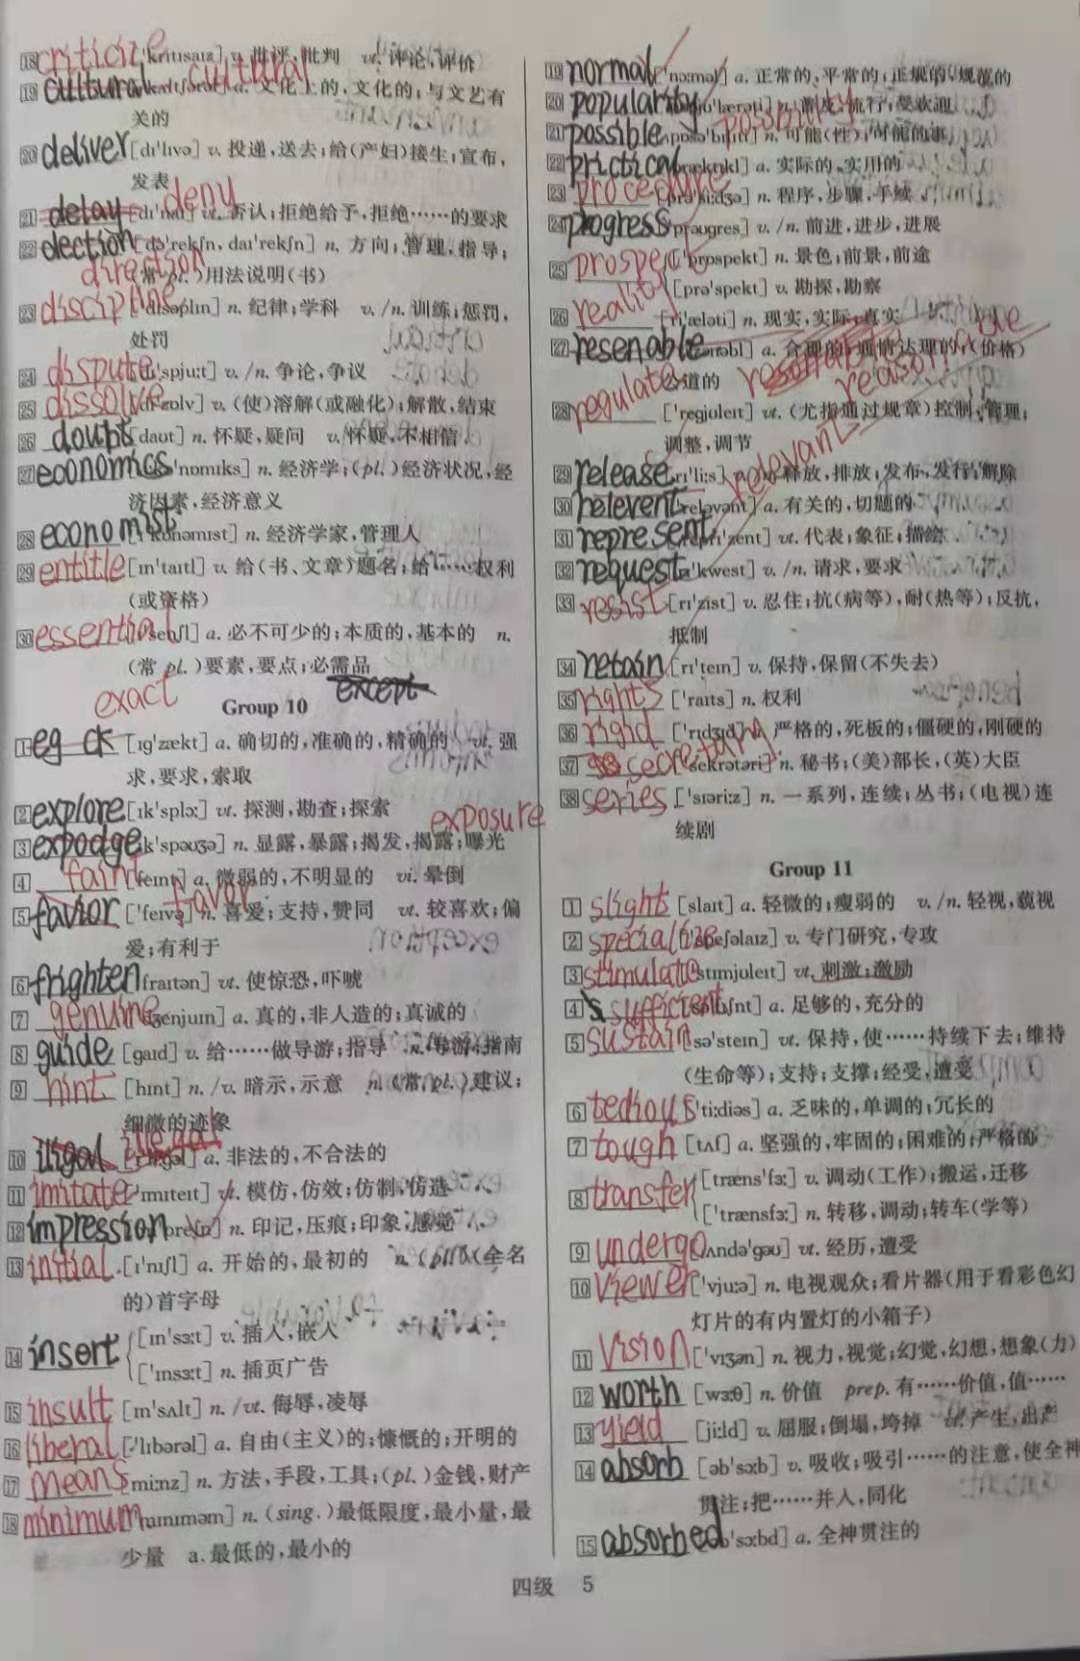 18 criticize ['krɪtɪsaɪz] v. 批评,批判 vt. 评论,评价
19 cultural cultural a. 文化上的,文化的;与文艺有
关的
20 deliver [dɪ'lɪvə] v. 投递,送去;给(产妇)接生;宣布,
发表
deny
21 delay vt. 否认;拒绝给予,拒绝……的要求
22 dection [də'rekʃn, daɪ'rekʃn] n. 方向;管理,指导;
direction (常 pl.)用法说明(书)
23 discipline ['dɪsəplɪn] n. 纪律;学科 v./n. 训练;惩罚,
处罚
24 dispute [dɪ'spjuːt] v./n. 争论,争议
25 dissolve [dɪ'zɒlv] v. (使)溶解(或融化);解散,结束
26 doubt [daʊt] n. 怀疑,疑问 v. 怀疑,不相信
27 economics 'nɒmɪks] n. 经济学;(pl.)经济状况,经
济因素,经济意义
28 economist 'kɒnəmɪst] n. 经济学家,管理人
29 entitle [ɪn'taɪtl] v. 给(书、文章)题名;给……权利
(或资格)
30 essential 'senʃl] a. 必不可少的;本质的,基本的 n.
(常 pl.)要素,要点;必需品
except
exact
Group 10
1 eg ck [ɪg'zækt] a. 确切的,准确的,精确的 vt. 强
求,要求,索取
2 explore [ɪk'splɔː] vt. 探测,勘查;探索
exposure
3 expodge ɪk'spəʊʒə] n. 显露,暴露;揭发,揭露;曝光
4 faint [feɪnt] a. 微弱的,不明显的 vi. 晕倒
favor
5 favior ['feɪvə] n. 喜爱;支持,赞同 vt. 较喜欢;偏
爱;有利于
6 frighten 'fraɪtən] vt. 使惊恐,吓唬
7 genuine 'dʒenjuɪn] a. 真的,非人造的;真诚的
8 guide [gaɪd] v. 给……做导游;指导 n. 导游;指南
9 hint [hɪnt] n./v. 暗示,示意 n. (常 pl.)建议;
细微的迹象
illegal
10 iligal [ɪ'liːgəl] a. 非法的,不合法的
11 imitate 'ɪmɪteɪt] vt. 模仿,仿效;仿制,仿造
12 impression 'preʃn] n. 印记,压痕;印象,感觉
13 initial [ɪ'nɪʃl] a. 开始的,最初的 n. (pl.)(全名
的)首字母
14 insert [ɪn'sɜːt] v. 插入,嵌入
['ɪnsɜːt] n. 插页广告
15 insult [ɪn'sʌlt] n./vt. 侮辱,凌辱
16 liberal ['lɪbərəl] a. 自由(主义)的;慷慨的;开明的
17 means miːnz] n. 方法,手段,工具;(pl.)金钱,财产
18 minimum 'mɪnɪməm] n. (sing.)最低限度,最小量,最
少量 a. 最低的,最小的
19 normal 'nɔːməl] a. 正常的,平常的;正规的,规范的
20 popularity 'lærəti] n. 普及,流行;受欢迎
possibility
21 possible n. 可能(性);可能的事
22 prictical 'præktɪkl] a. 实际的,实用的
23 procedure prə'siːdʒə] n. 程序,步骤,手续
24 progress 'prəʊgres] v./n. 前进,进步,进展
25 prospect ['prɒspekt] n. 景色;前景,前途
[prə'spekt] v. 勘探,勘察
26 reality [ri'æləti] n. 现实,实际;真实
27 resenable a. 合理的;通情达理的;(价格)
公道的 reasonable
28 regulate ['regjuleɪt] vt. (尤指通过规章)控制,管理;
调整,调节
29 release rɪ'liːs] 释放,排放;发布,发行;解除
relevant
30 relevent 'reləvənt] a. 有关的,切题的
31 represent 'zent] vt. 代表;象征;描绘
32 request 'kwest] v./n. 请求,要求
33 resist [rɪ'zɪst] v. 忍住;抗(病等),耐(热等);反抗,
抵制
34 retain [rɪ'teɪn] v. 保持,保留(不失去)
35 rights ['raɪts] n. 权利
36 rigid ['rɪdʒɪd] 严格的,死板的;僵硬的,刚硬的
37 secretary 'sekrətəri] n. 秘书;(美)部长,(英)大臣
38 series ['sɪəriːz] n. 一系列,连续;丛书;(电视)连
续剧
Group 11
1 slight [slaɪt] a. 轻微的;瘦弱的 v./n. 轻视,藐视
2 specialize 'speʃəlaɪz] v. 专门研究,专攻
3 stimulate 'stɪmjuleɪt] vt. 刺激;激励
4 sufficient 'fɪʃnt] a. 足够的,充分的
5 sustain [sə'steɪn] vt. 保持,使……持续下去;维持
(生命等);支持;支撑;经受,遭受
6 tedious ['tiːdiəs] a. 乏味的,单调的;冗长的
7 tough [tʌf] a. 坚强的,牢固的;困难的;严格的
8 transfer [træns'fɜː] v. 调动(工作);搬运,迁移
['trænsfɜː] n. 转移,调动;转车(学等)
9 undergo ˌʌndə'gəʊ] vt. 经历,遭受
10 viewer ['vjuːə] n. 电视观众;看片器(用于看彩色幻
灯片的有内置灯的小箱子)
11 vision ['vɪʒən] n. 视力,视觉;幻觉,幻想,想象(力)
12 worth [wɜːθ] n. 价值 prep. 有……价值,值……
13 yield [jiːld] v. 屈服;倒塌,垮掉 vt. 产生,出产
14 absorb [əb'sɔːb] v. 吸收;吸引……的注意,使全神
贯注;把……并入,同化
15 absorbed əb'sɔːbd] a. 全神贯注的
四级 5